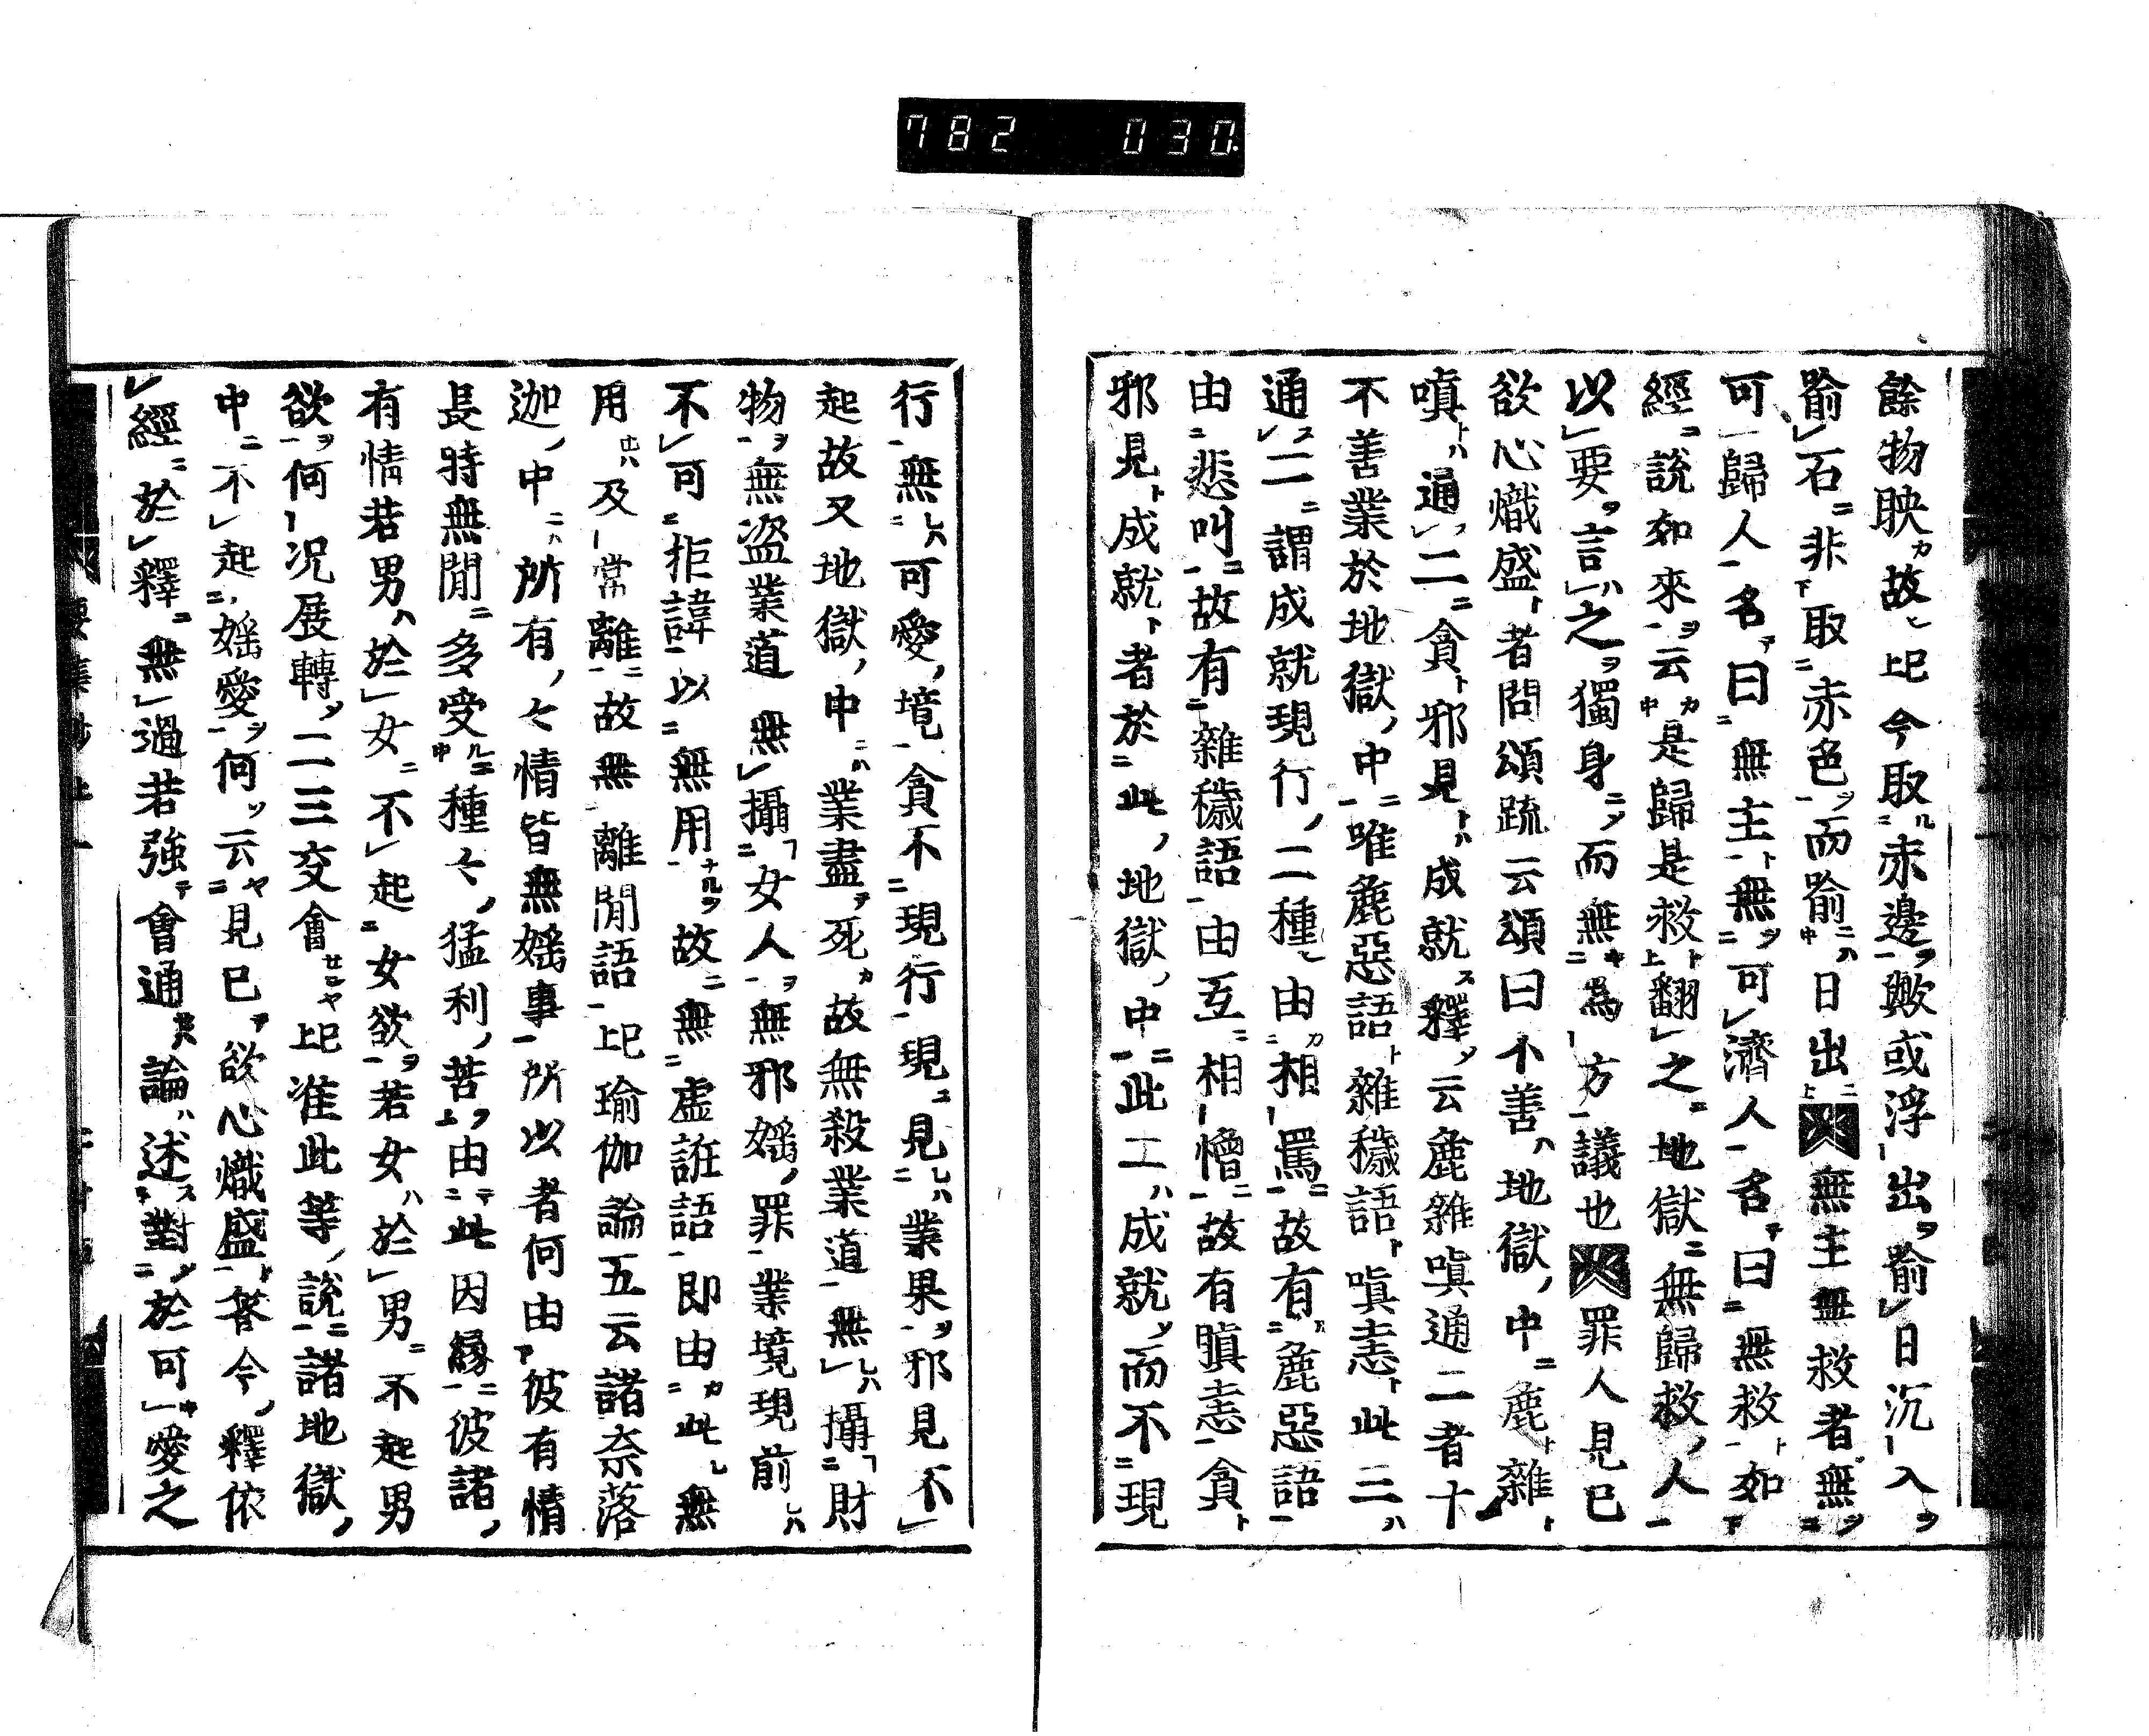 782 030
餘物映故上巳今取赤邊歟或浮出喩日沉入
喩石非取赤色而喩日出無主無救者無
可歸人名曰無主無可濟人名曰無救如
經說如來云是歸是救翻之地獄無歸救人
以要言之獨身而無為方議也罪人見已
欲心熾盛者問頌疏云頌曰不善地獄中麁雜
嗔通二貪邪見成就釋云麁雜嗔通二者十
不善業於地獄中唯麁惡語雜穢語嗔恚此三
通二謂成就現行二種由相罵故有麁惡語
由悲叫故有雜穢語由互相憎故有瞋恚貪
邪見成就者於此地獄中此二成就而不現
行無可愛境貪不現行現見業果邪見不
起故又地獄中業盡死故無殺業道無攝財
物無盜業道無攝女人無邪婬罪業境現前
不可拒諱以無用故無虛誑語即由此無
用及常離故無離間語上巳瑜伽論五云諸奈落
迦中所有々情皆無婬事所以者何由彼有情
長時無間多受種々猛利苦由此因緣彼諸
有情若男於女不起女欲若女於男不起男
欲何況展轉二二交會上巳准此等說諸地獄
中不起婬愛何云見已欲心熾盛答今釋依
經於釋無過若強會通論述對於可愛之